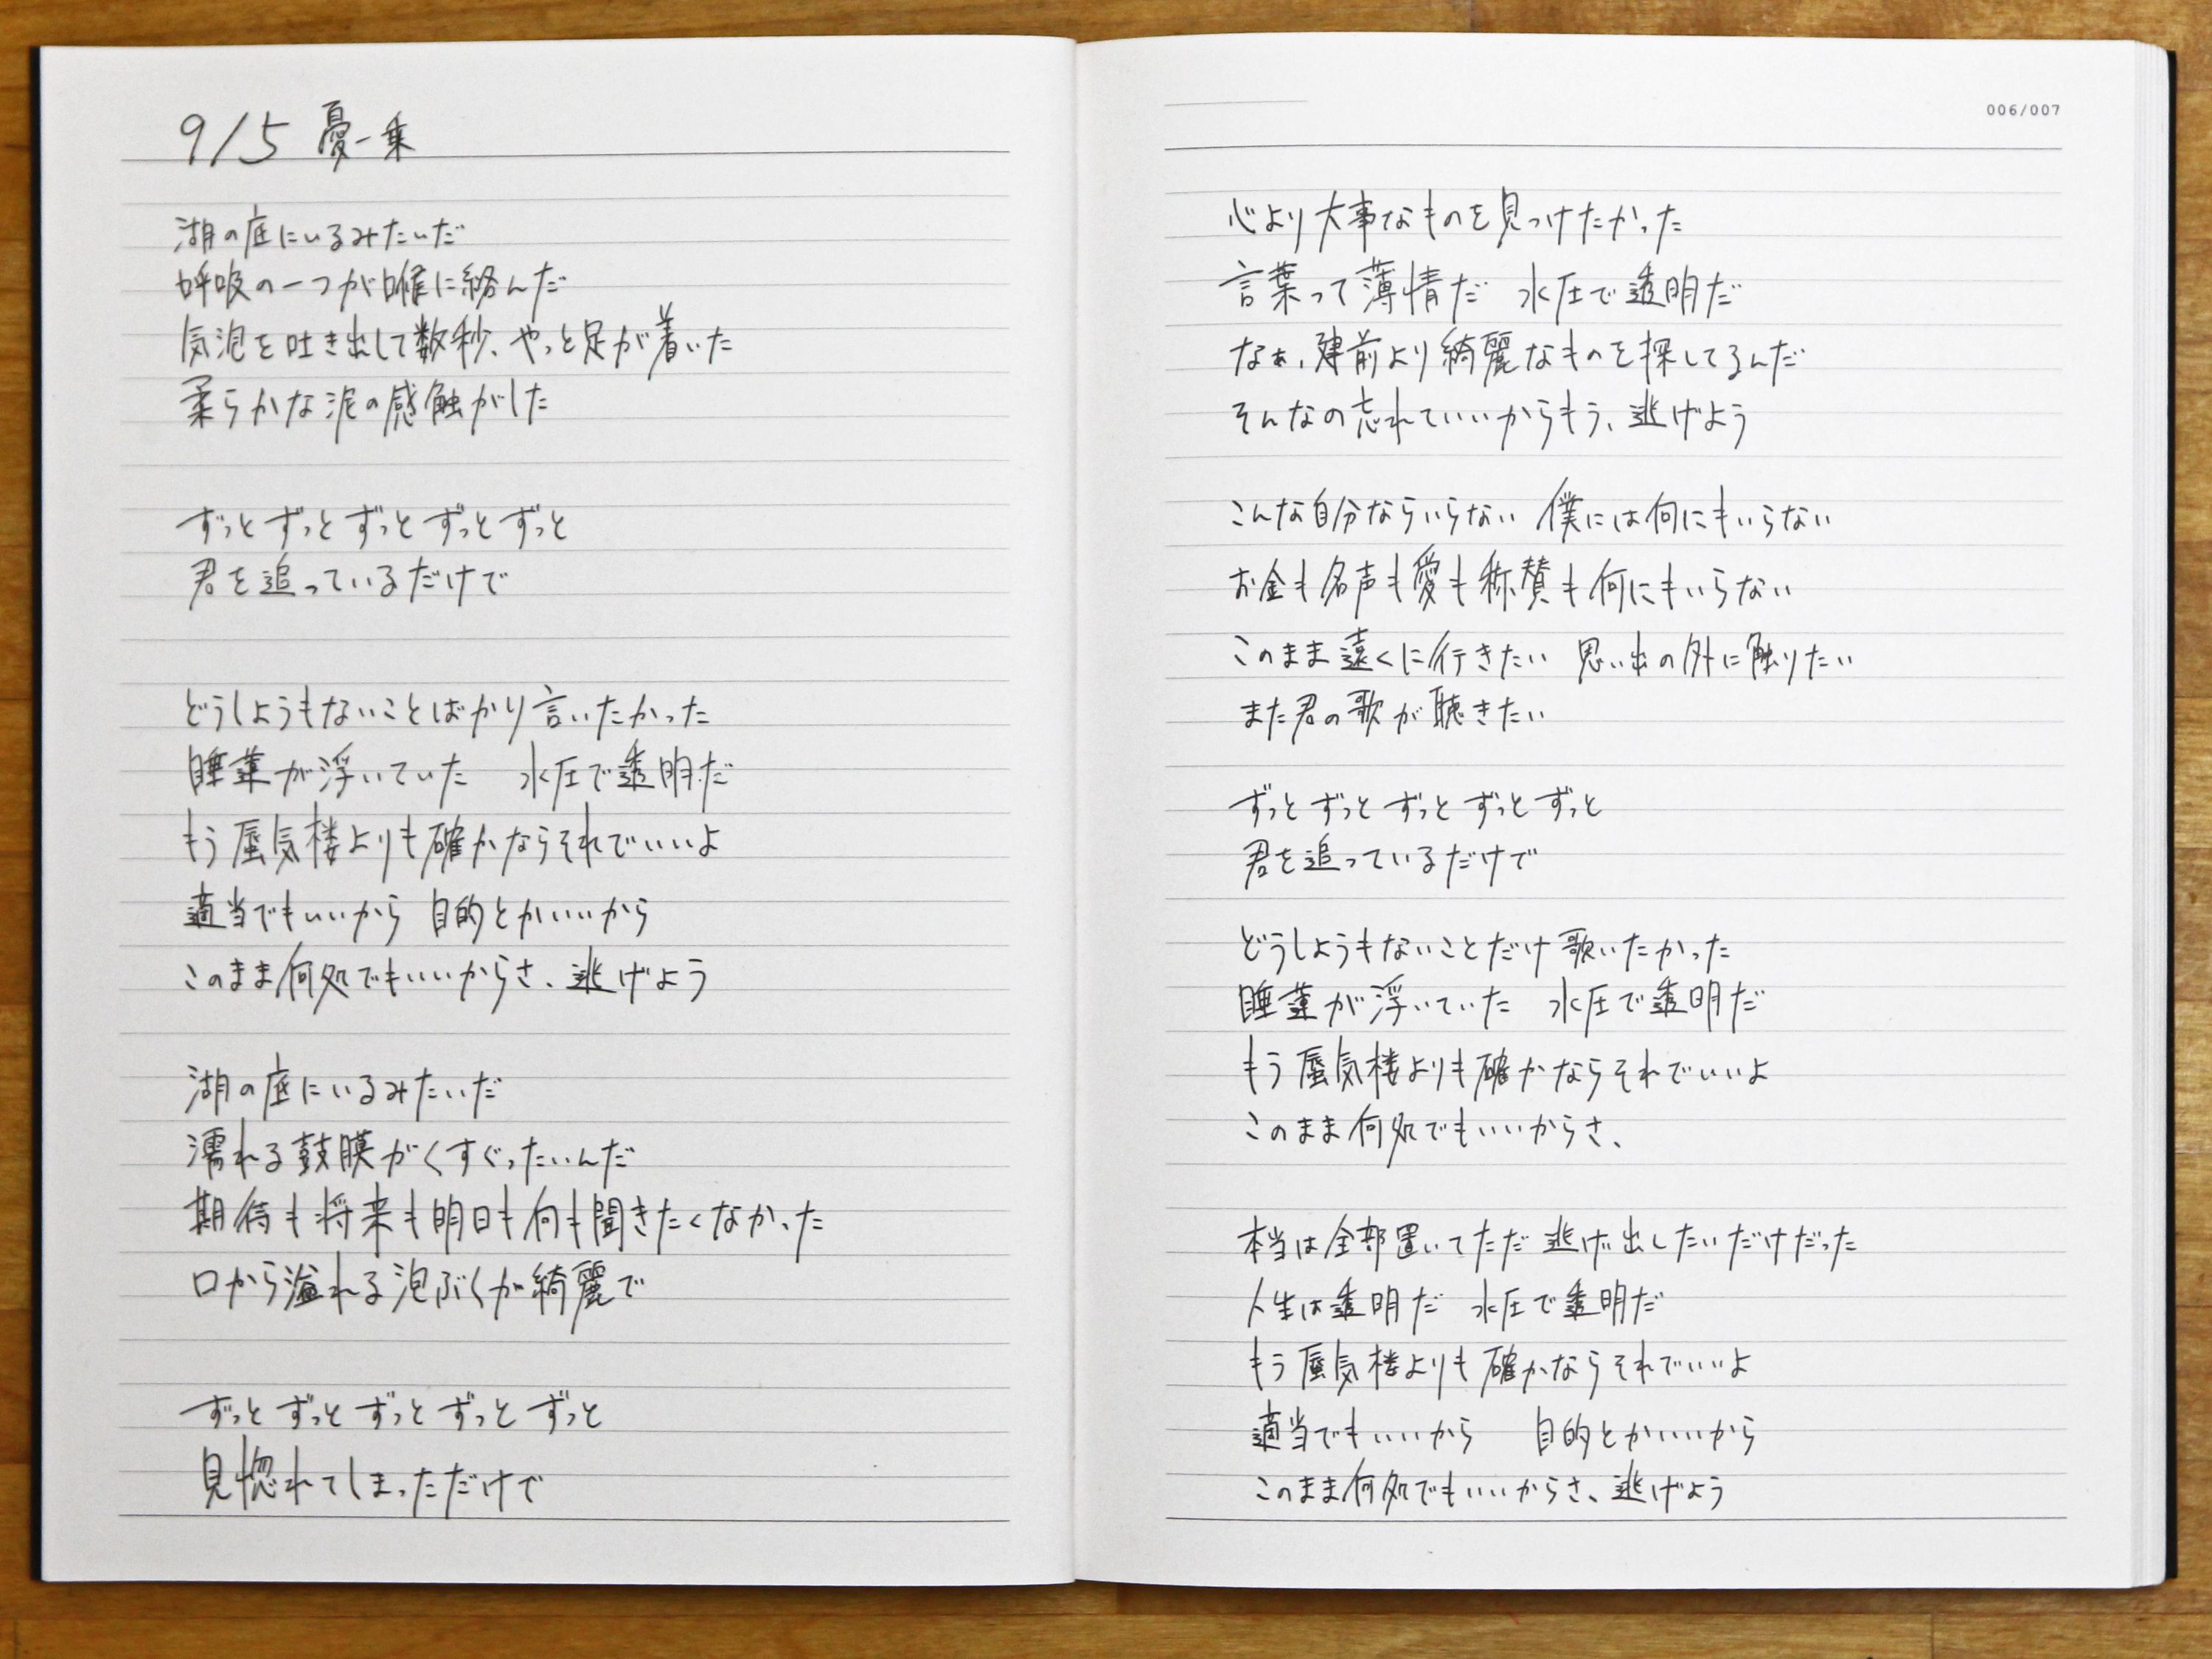 9/5 憂一乗
湖の底にいるみたいだ
呼吸の一つが喉に絡んだ
気泡を吐き出して数秒、やっと足が着いた
柔らかな泥の感触がした
ずっとずっとずっとずっとずっと
君を追っているだけで
どうしようもないことばかり言いたかった
睡蓮が浮いていた 水圧で透明だ
もう蜃気楼よりも確かならそれでいいよ
適当でもいいから 目的とかいいから
このまま何処でもいいからさ、逃げよう
湖の底にいるみたいだ
濡れる鼓膜がくすぐったいんだ
期待も将来も明日も何も聞きたくなかった
口から溢れる泡ぶくが綺麗で
ずっとずっとずっとずっとずっと
見惚れてしまっただけで
006/007
心より大事なものを見つけたかった
言葉って薄情だ 水圧で透明だ
なぁ、建前より綺麗なものを探してるんだ
そんなの忘れていいからもう、逃げよう
こんな自分ならいらない 僕には何にもいらない
お金も名声も愛も称賛も何にもいらない
このまま遠くに行きたい 思い出の外に触りたい
また君の歌が聴きたい
ずっとずっとずっとずっとずっと
君を追っているだけで
どうしようもないことだけ歌いたかった
睡蓮が浮いていた 水圧で透明だ
もう蜃気楼よりも確かならそれでいいよ
このまま何処でもいいからさ、
本当は全部置いてただ逃げ出したいだけだった
人生は透明だ 水圧で透明だ
もう蜃気楼よりも確かならそれでいいよ
適当でもいいから 目的とかいいから
このまま何処でもいいからさ、逃げよう